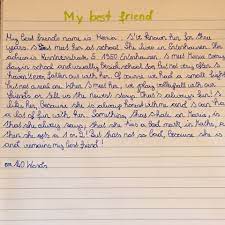 My best friend
My best friends name is Maria. I've known her for three
years. I met her at school. She lives in Entenhausen. Her
adress is 5 1950 Entenhausen. I meet Maria every
day in school and usually beside school too but not very often. I
haven't ever fallen out with her. Of course we had a small fight
but not a real one. When I meet her, we play volleyball with our
friends or tell us the newest story. That's always fun! I
like her, because she is always honest with me and I can have
a lot of fun with her. Something I hate on Maria, is
that she always says, that she has a bad mark in Maths, and
then she gets a 1 or 2! But that's not so bad, because she is
and remains my best friend!
140 Words